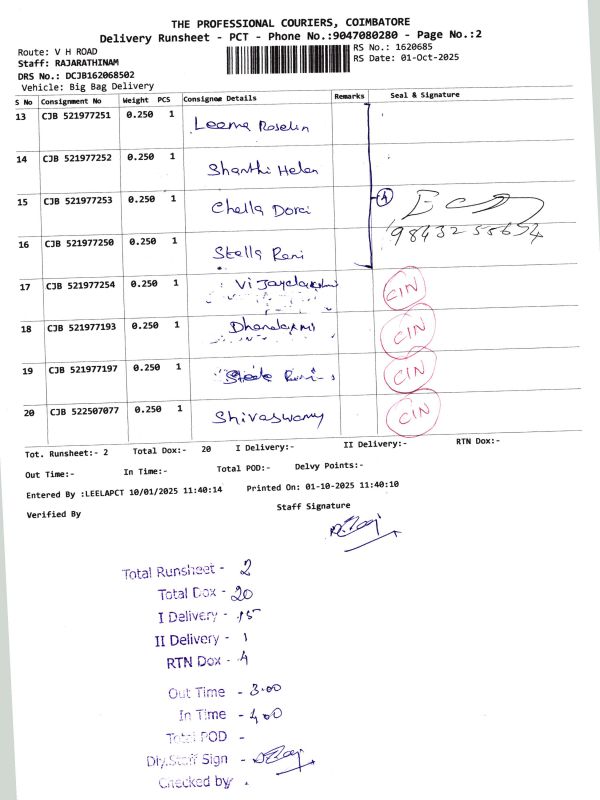 THE PROFESSIONAL COURIERS, COIMBATORE
Delivery Runsheet - PCT - Phone No.:9047080280 - Page No.:2
Route: V H ROAD RS No.: 1620685
Staff: RAJARATHINAM RS Date: 01-Oct-2025
DRS No.: DCJB162068502
Vehicle: Big Bag Delivery
S No Consignment No Weight PCS Consignee Details Remarks Seal & Signature
13 CJB 521977251 0.250 1 Leema Roselin
14 CJB 521977252 0.250 1 Shanthi Helen
15 CJB 521977253 0.250 1 Chella Dorci 4
9843255654
16 CJB 521977250 0.250 1 Stella Rani
17 CJB 521977254 0.250 1 Vijayalakshmi CIN
18 CJB 521977193 0.250 1 Dhanalaxmi CIN
19 CJB 521977197 0.250 1 CIN
20 CJB 522507077 0.250 1 Shivaswamy CIN
Tot. Runsheet:- 2 Total Dox:- 20 I Delivery:- II Delivery:- RTN Dox:-
Out Time:- In Time:- Total POD:- Delvy Points:-
Entered By :LEELAPCT 10/01/2025 11:40:14 Printed On: 01-10-2025 11:40:10
Verified By Staff Signature
Total Runsheet - 2
Total Dox - 20
I Delivery - 15
II Delivery - 1
RTN Dox - 4
Out Time - 3.00
In Time - 4.00
Total POD -
Dly.Staff Sign -
Checked by